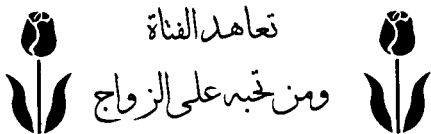 تعاهد الفتاة
ومن تحبه على الزواج